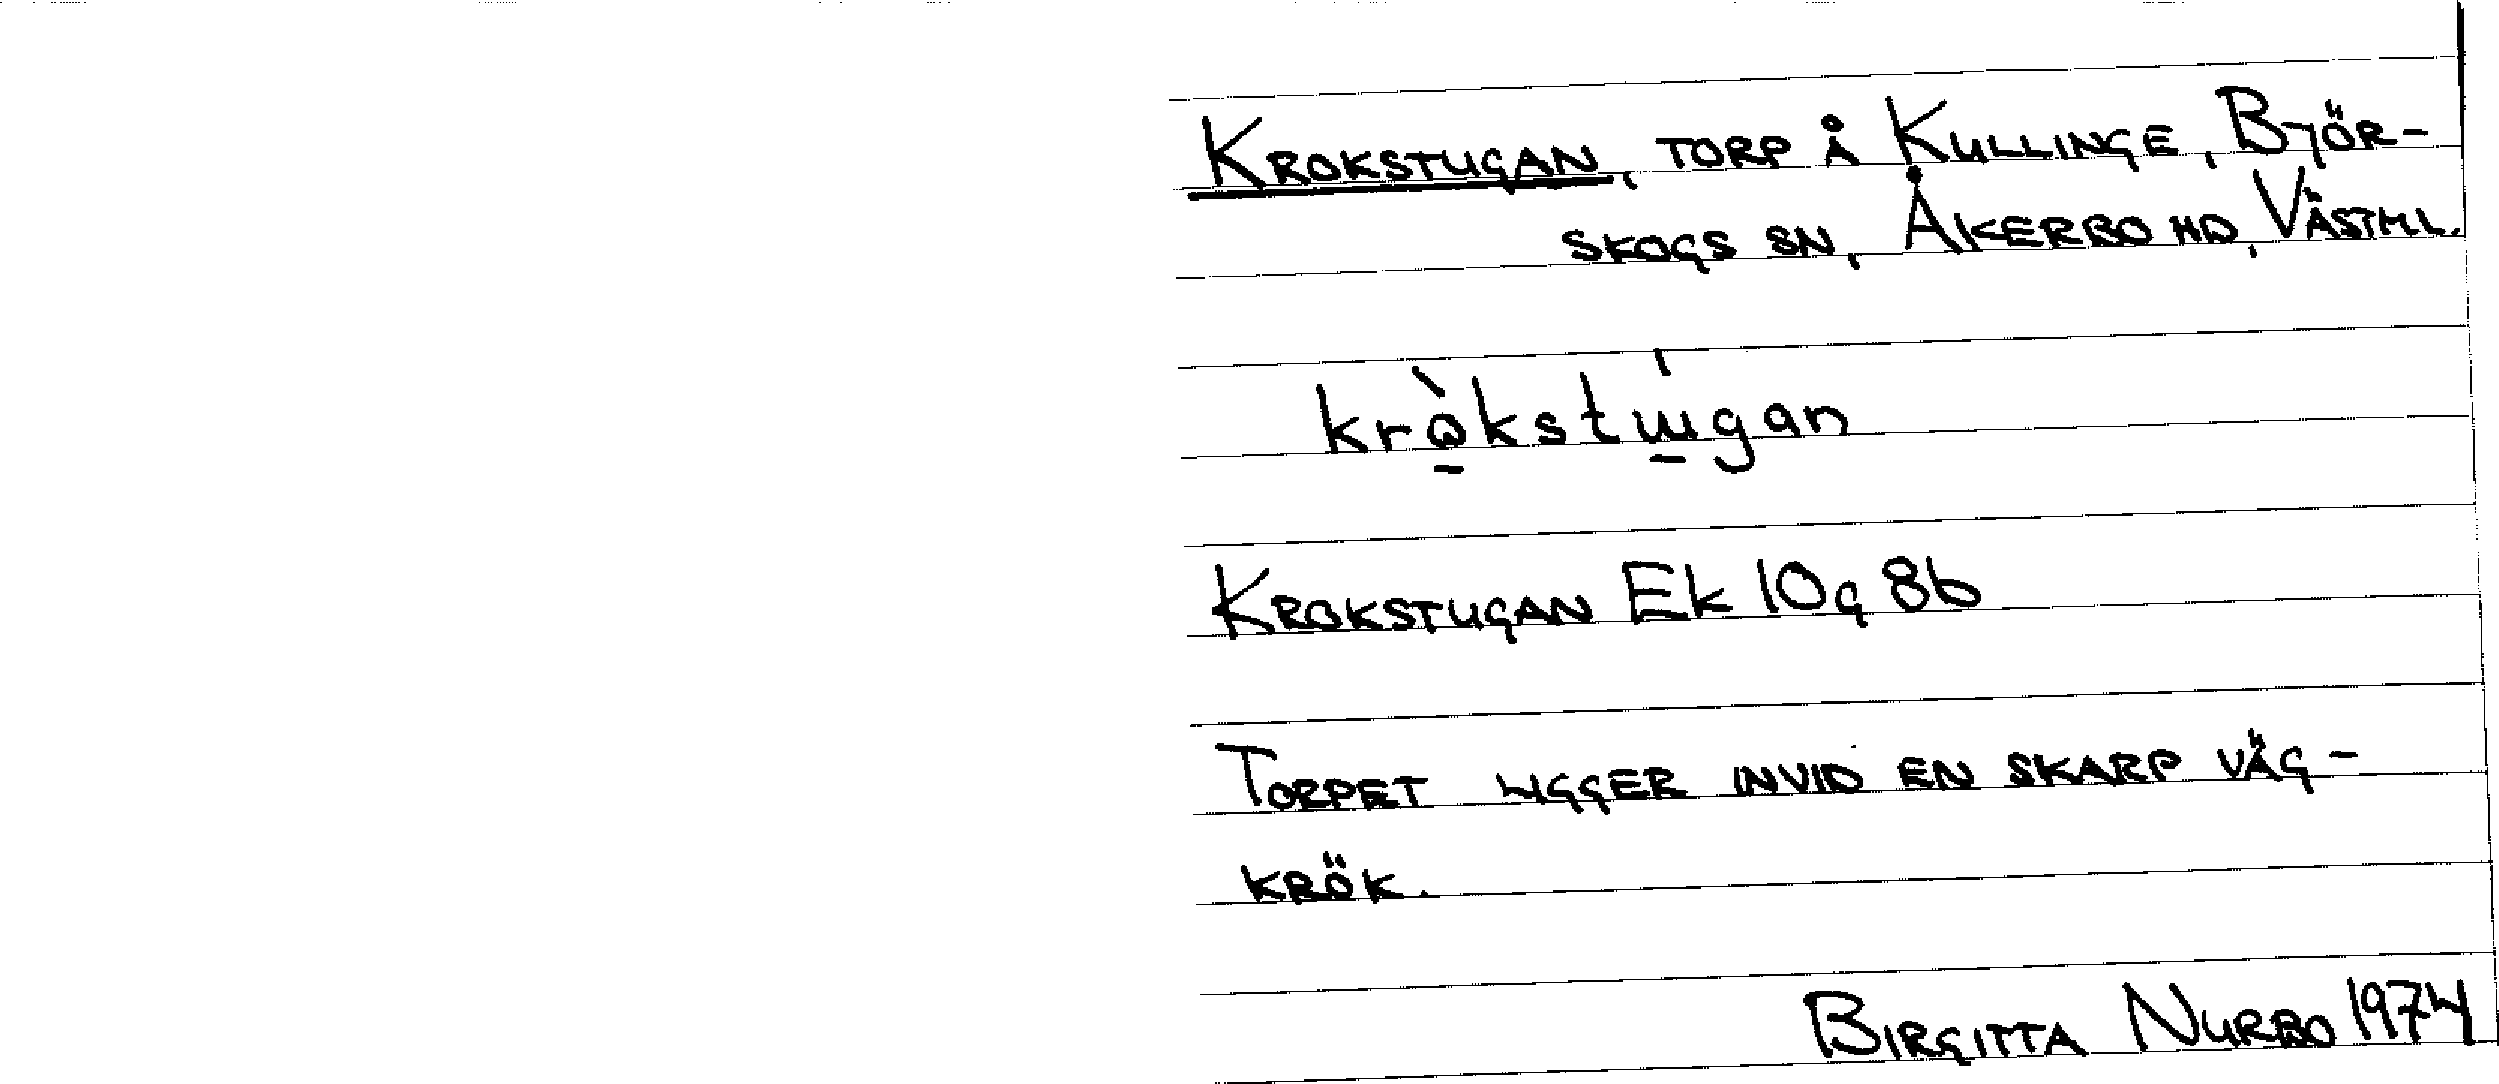 Krokstugan, torp å Kullinge, Björ-
skogs sn, Åkerbo hd, Västml.
kròkstugan
Krokstugan Ek 10g 8b
Torpet ligger invid en skarp väg-
krök.
Birgitta Nurbo 1974